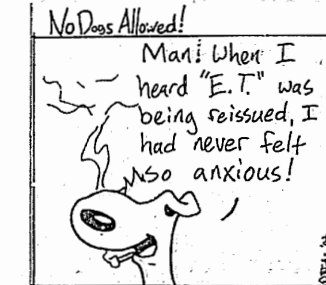 No Dogs Allowed!
Man! When I
heard "E.T." was
being reissued, I
had never felt
so anxious!